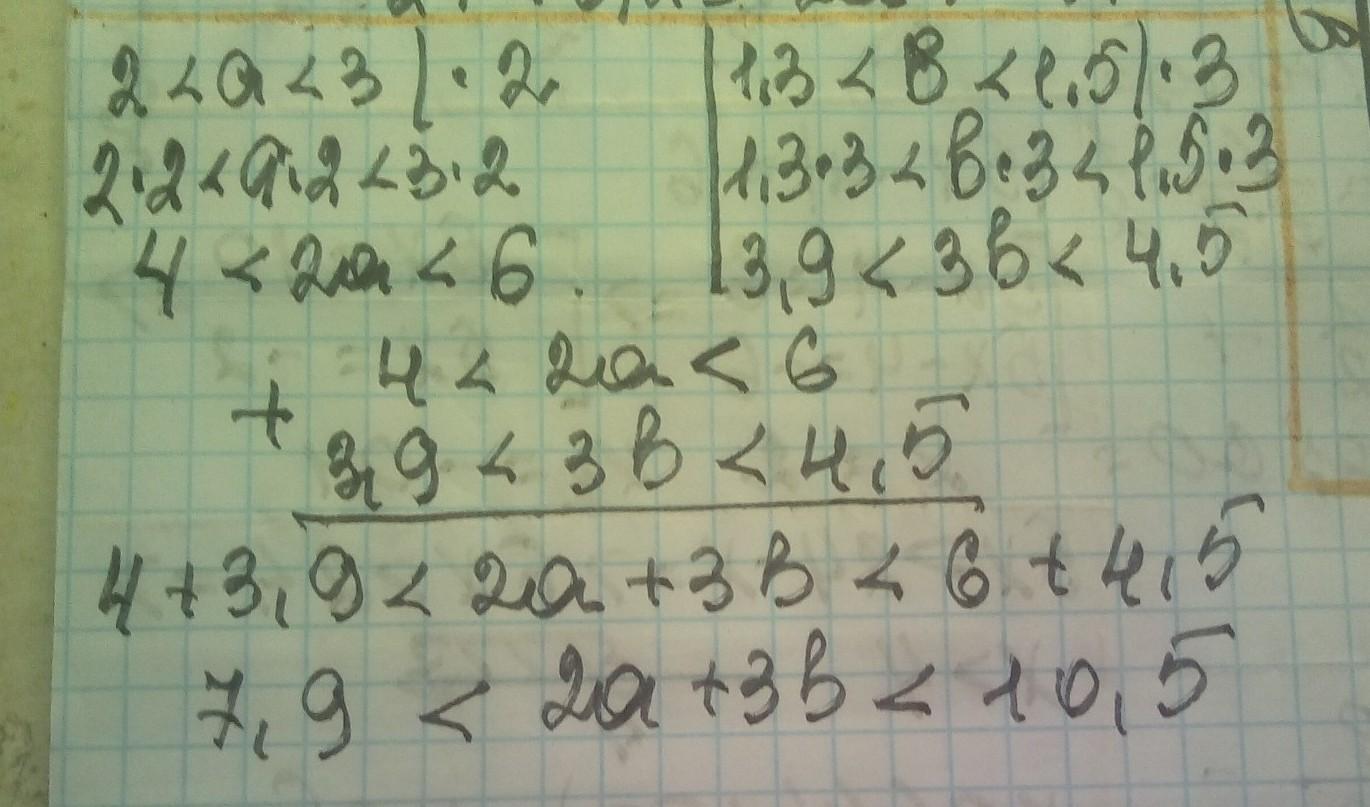 2 < a < 3 | · 2
2·2 < a·2 < 3·2
4 < 2a < 6.
1,3 < в < 1,5 | · 3
1,3·3 < в·3 < 1,5·3
3,9 < 3в < 4,5
4 < 2a < 6
+
3,9 < 3в < 4,5
4 + 3,9 < 2a + 3в < 6 + 4,5
7,9 < 2a + 3в < 10,5